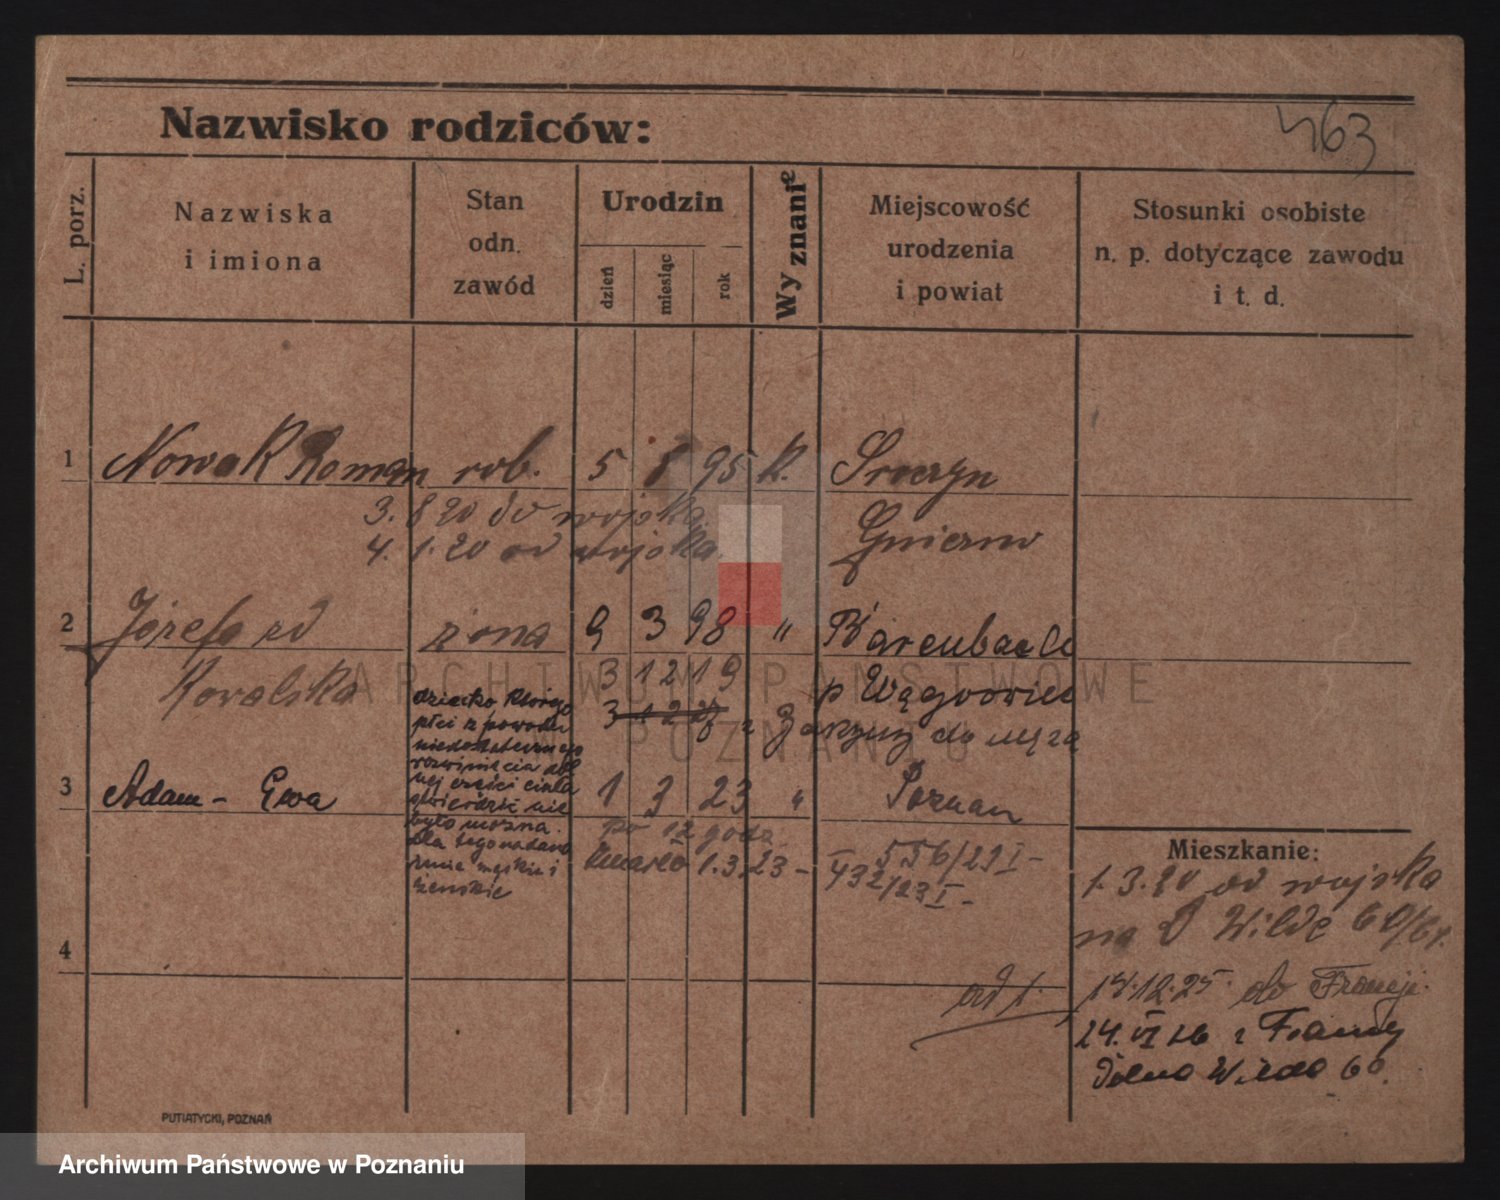 463
Nazwisko rodziców:
L. porz.
Nazwiska
i imiona
Stan
odn.
zawód
Urodzin
dzień
miesiąc
rok
Wyznanie
Miejscowość
urodzenia
i powiat
Stosunki osobiste
n. p. dotyczące zawodu
i t. d.
1 Nowak Roman rob. 5 8 95 k.
3. 8 20 do wojska
4. 1. 20 od wojska
Gniezno
2 Józefa zd żona 9 3 98 "
Kowalska
3 12 19
p Wągrowiec
do męża
dziecko którego
płci z powodu
niedostatecznego
rozwinięcia dol
nej części ciała
stwierdzić nie
było można.
dla tego nadano
imie męskie i
żeńskie
3 Adam - Ewa 1 3 23 " Poznań
po 12 godz
zmarło 1.3.23 -
556/29 I -
432/23 I -
4
Mieszkanie:
1. 3. 20 od wojska
na D Wildę 60/61.
ad 1. 14.12.25 do Francji.
24. VI 26 z Francji
Dolna Wilda 60.
PUTIATYCKI, POZNAŃ
ARCHIWUM PAŃSTWOWE
W POZNANIU
Archiwum Państwowe w Poznaniu